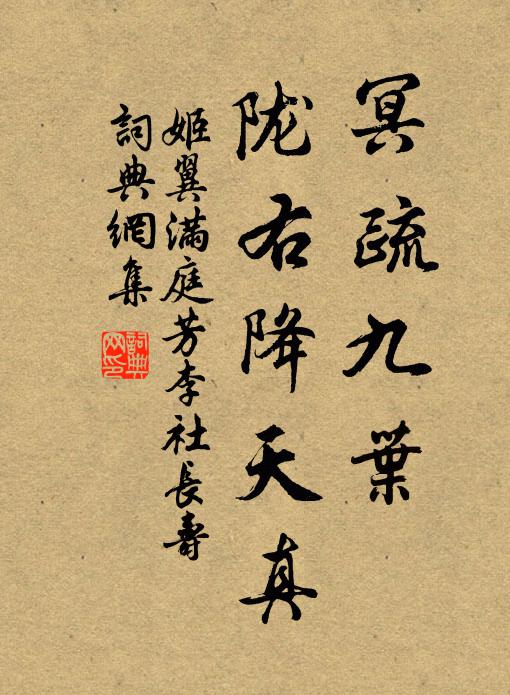 冥疏九葉
陇右降天真
姬翼满庭芳李社長壽
詞典網集
詞典網印